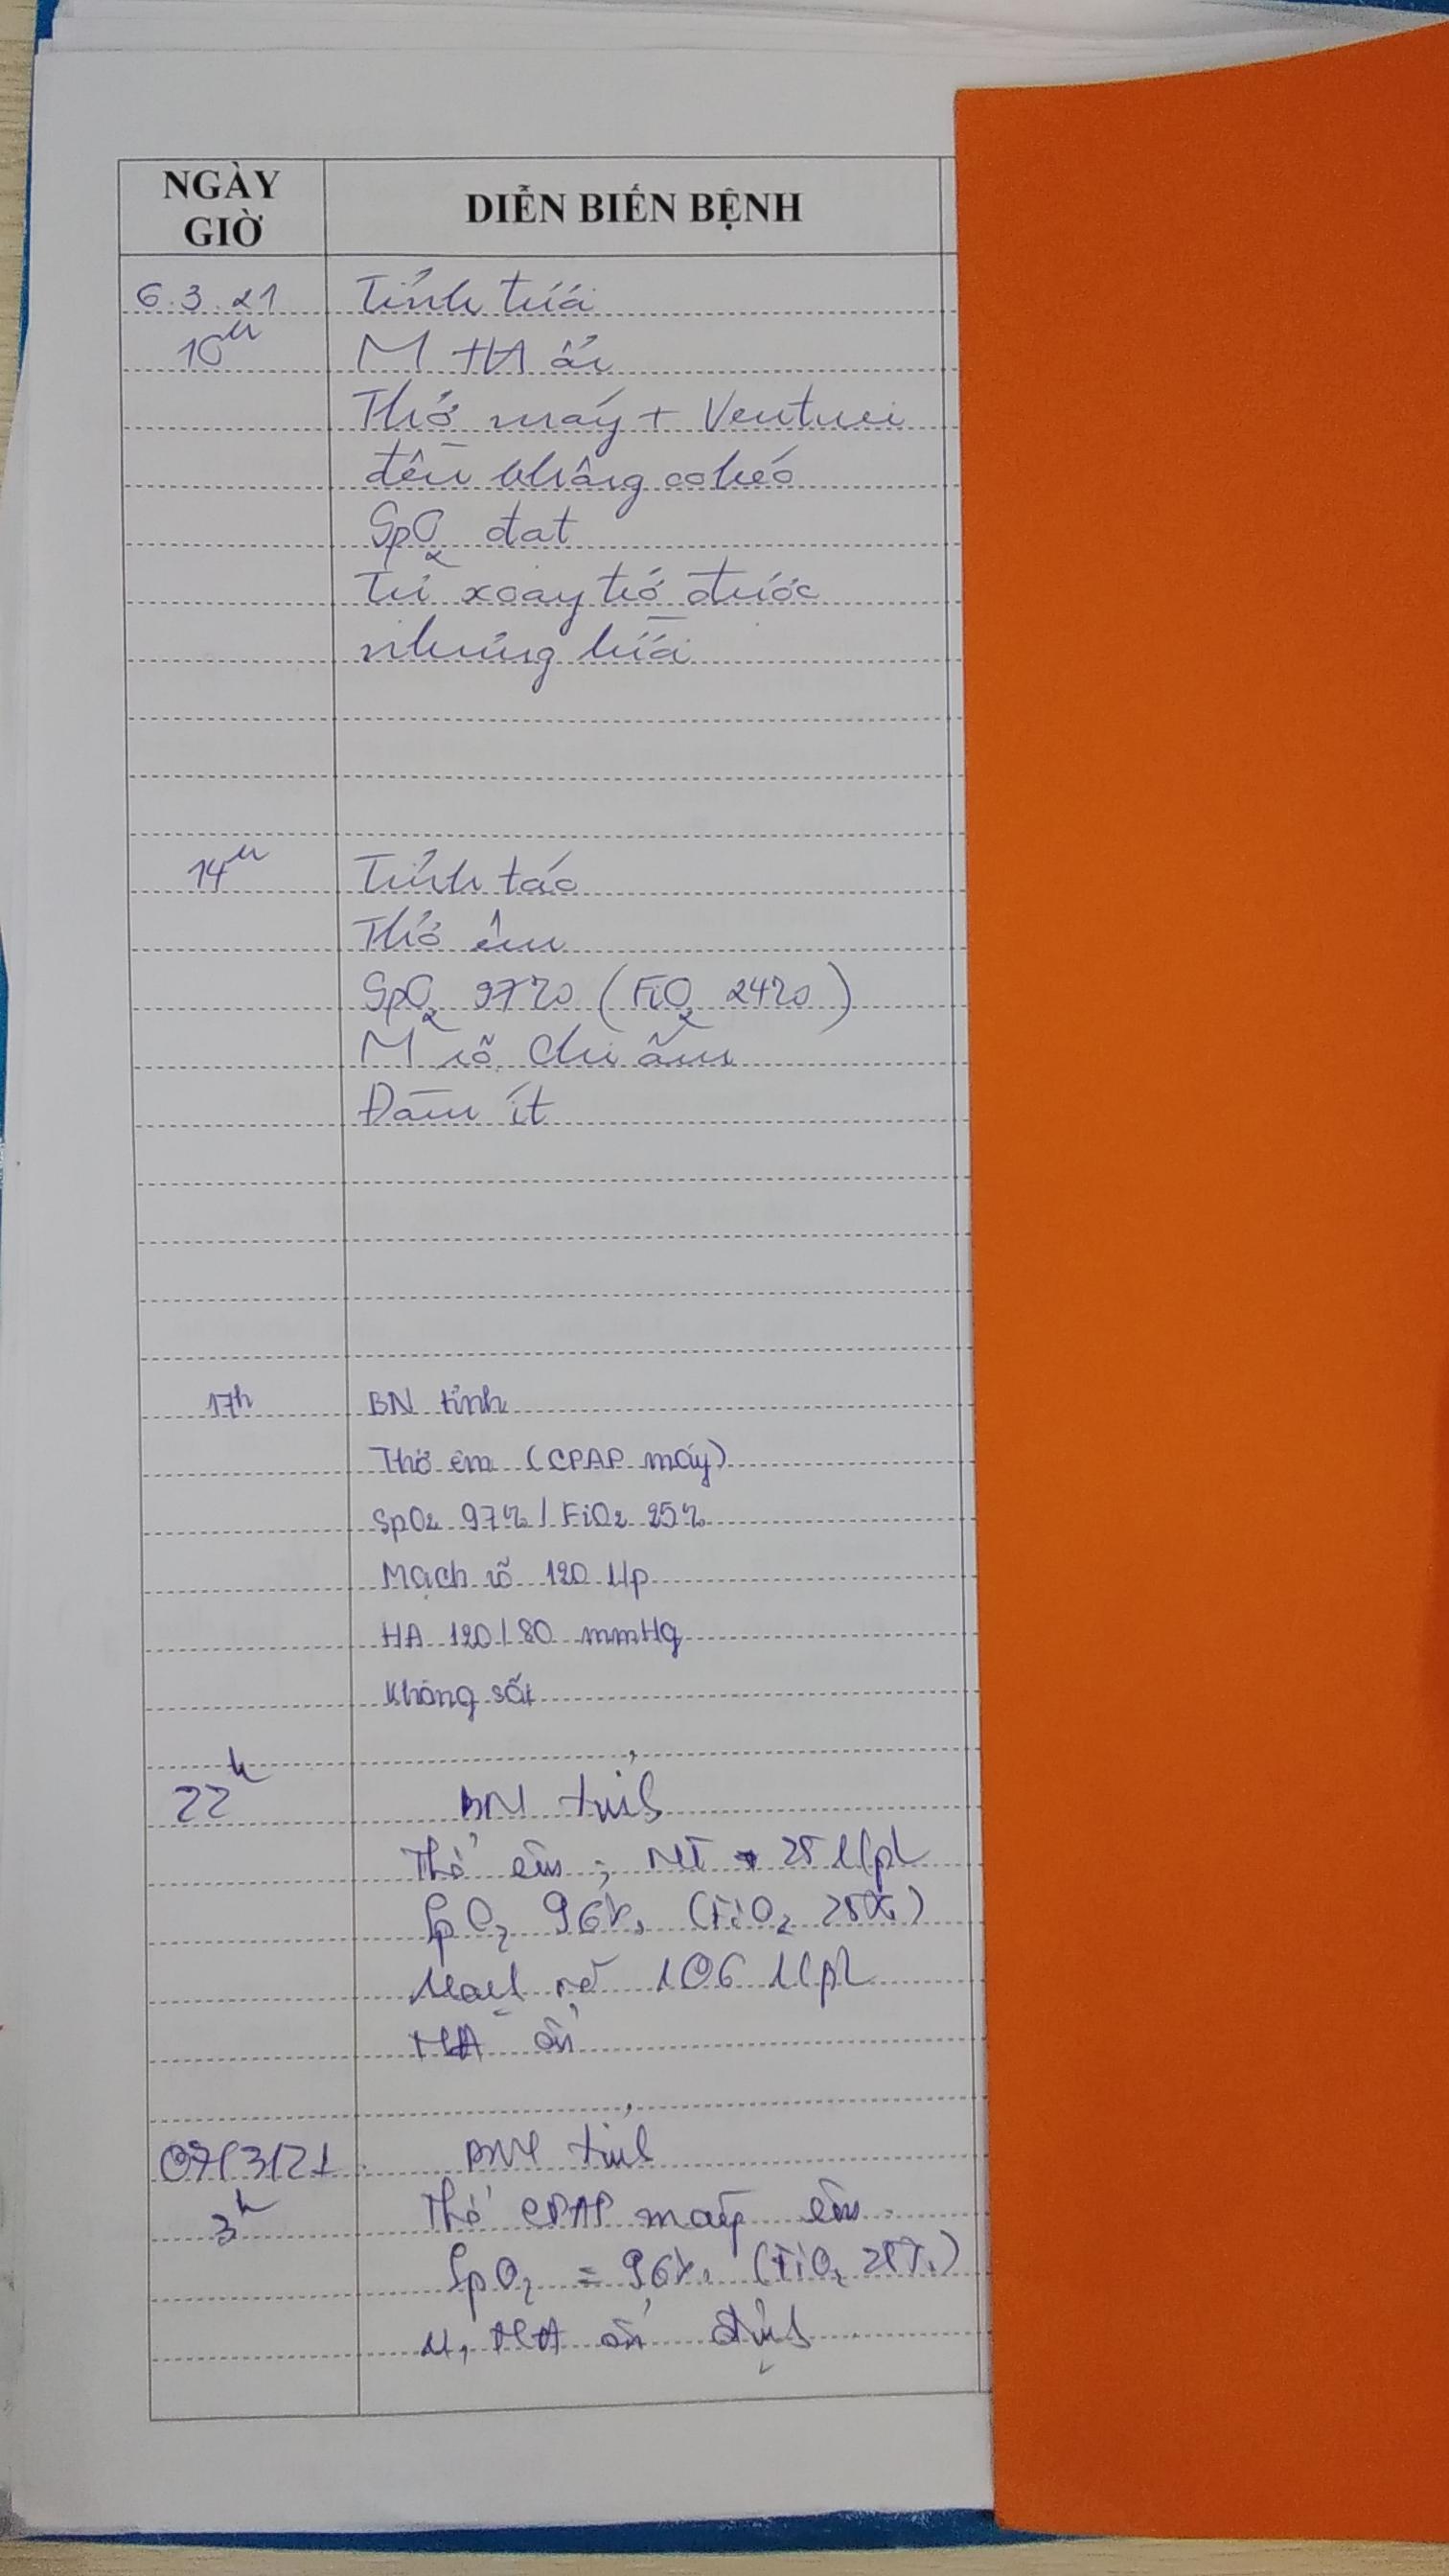 NGÀY
GIỜ
DIỄN BIẾN BỆNH
6.3.21
Tỉnh
10h
M HA ổn
Thở máy + Venturi
đều không co kéo
SpO2 đạt
Tự xoay trở được
nhưng
14h
Tỉnh táo
Thở êm
SpO2 97% (FiO2 24%)
M rõ, Chi ấm
Đàm ít
17h
BN tỉnh
Thở êm (CPAP máy)
SpO2 97% / FiO2 25%
Mạch rõ 120 l/p
HA 120/80 mmHg
Không sốt
22h
BN tỉnh
Thở êm, NT 25 l/ph
SpO2 96% (FiO2 25%)
Mạch rõ 106 l/ph
HA ổn
07/3/21
BN tỉnh
3h
Thở CPAP máy êm
SpO2 = 96% (FiO2 25%)
M, HA ổn định